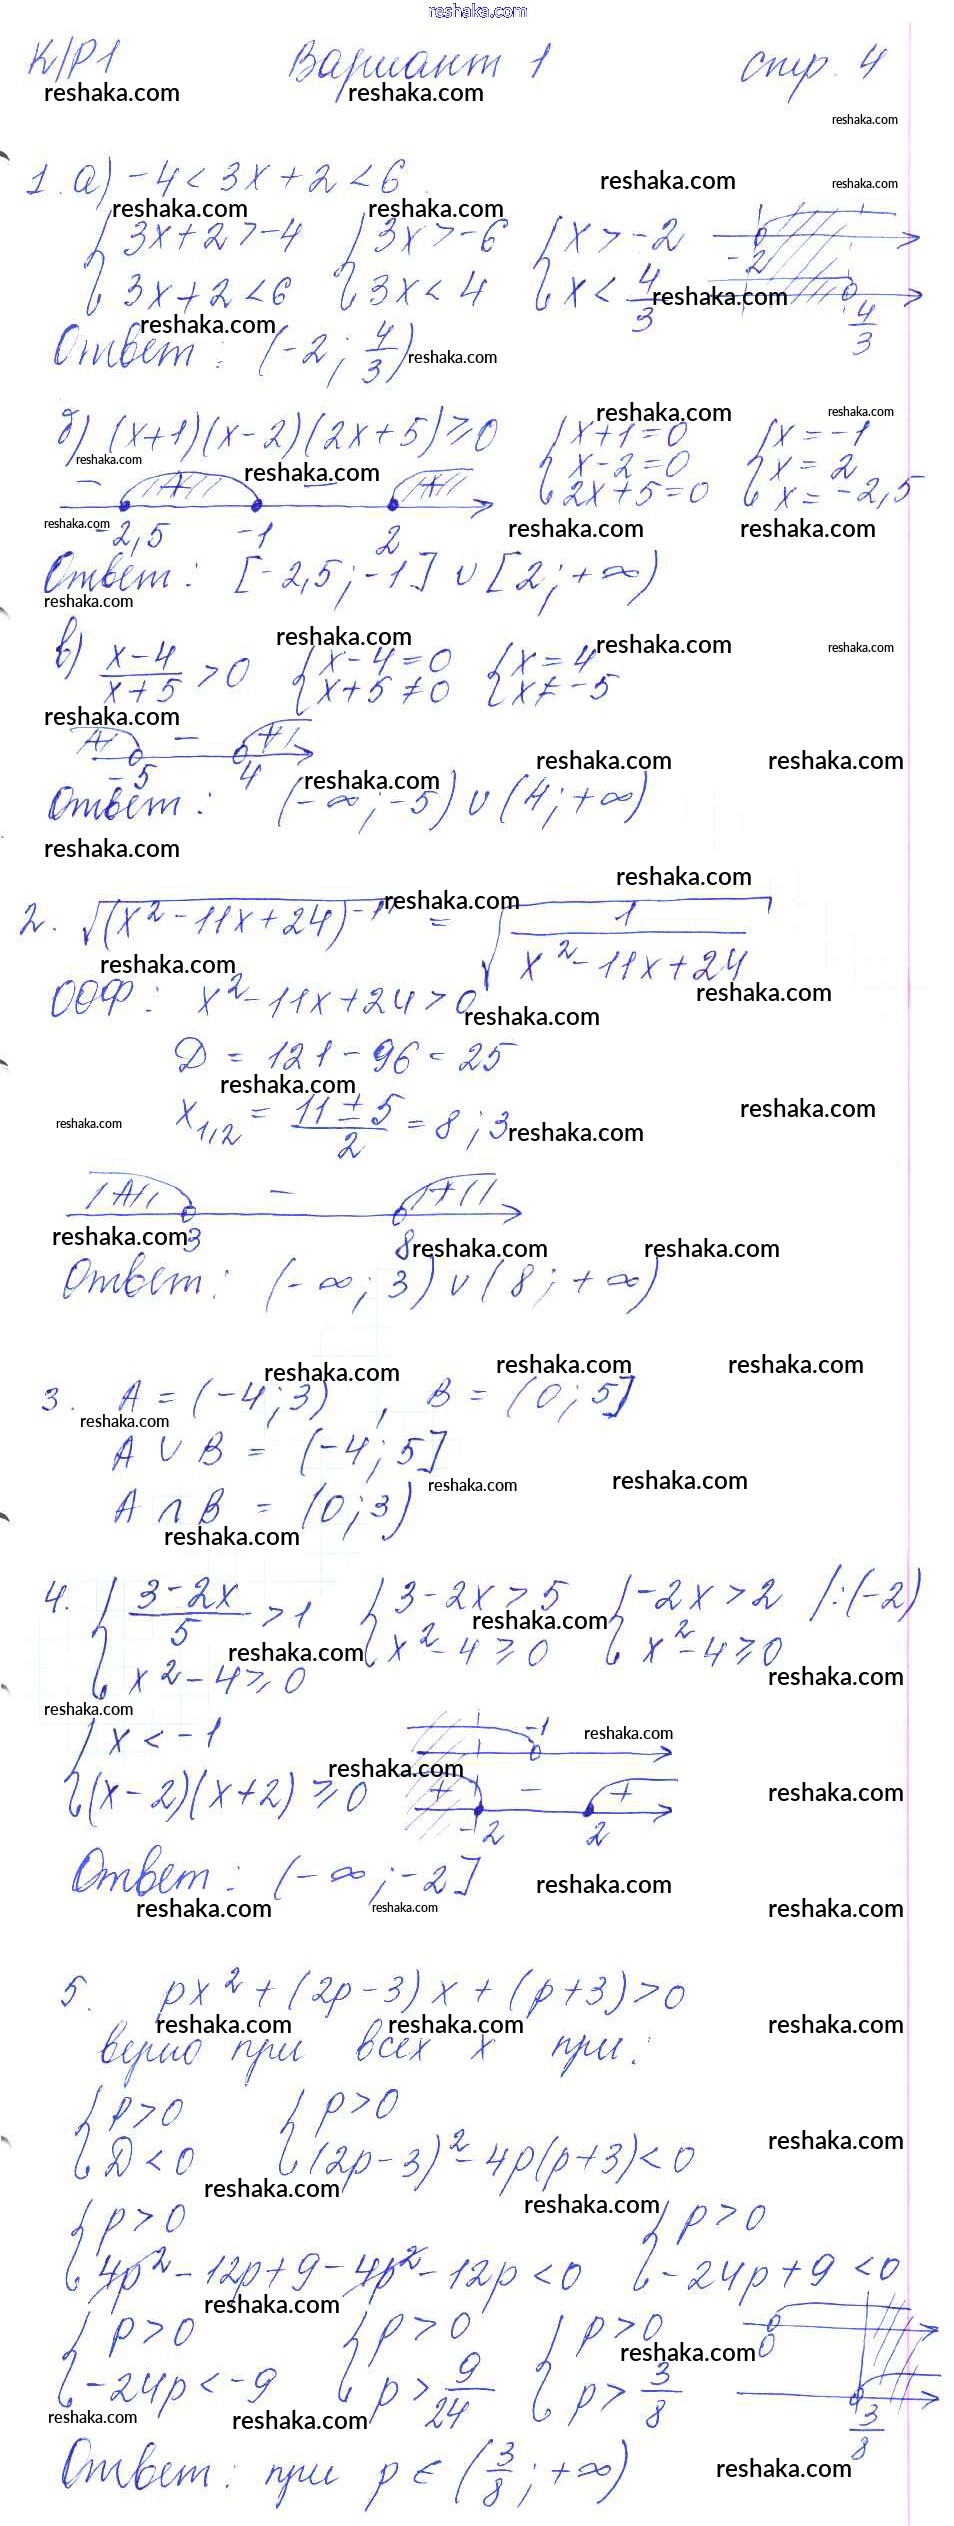 reshaka.com
К/Р1 Вариант 1 стр. 4
1. а) -4 < 3x + 2 < 6
{ 3x + 2 > -4 { 3x > -6 { x > -2
{ 3x + 2 < 6 { 3x < 4 { x < 4/3
-2
4/3
Ответ: (-2; 4/3)
б) (x+1)(x-2)(2x+5) ≥ 0 { x+1=0 { x=-1
{ x-2=0 { x=2
{ 2x+5=0 { x=-2,5
- + - +
-2,5 -1 2
Ответ: [-2,5; -1] ∪ [2; +∞)
в) (x-4)/(x+5) > 0 { x-4=0 { x=4
{ x+5≠0 { x≠-5
+ - +
-5 4
Ответ: (-∞; -5) ∪ (4; +∞)
2. √((x² - 11x + 24)⁻¹) = √(1/(x² - 11x + 24))
ООФ: x² - 11x + 24 > 0
D = 121 - 96 = 25
x₁,₂ = (11 ± 5)/2 = 8; 3
+ - +
3 8
Ответ: (-∞; 3) ∪ (8; +∞)
3. A = (-4; 3), B = (0; 5]
A ∪ B = (-4; 5]
A ∩ B = (0; 3)
4. { (3-2x)/5 > 1 { 3-2x > 5 { -2x > 2 /:(-2)
{ x² - 4 ≥ 0 { x² - 4 ≥ 0 { x² - 4 ≥ 0
{ x < -1
{ (x-2)(x+2) ≥ 0
-1
+ - +
-2 2
Ответ: (-∞; -2]
5. px² + (2p-3)x + (p+3) > 0
верно при всех x при:
{ p > 0 { p > 0
{ D < 0 { (2p-3)² - 4p(p+3) < 0
{ p > 0 { p > 0
{ 4p² - 12p + 9 - 4p² - 12p < 0 { -24p + 9 < 0
{ p > 0 { p > 0 { p > 0
{ -24p < -9 { p > 9/24 { p > 3/8
0
3/8
Ответ: при p ∈ (3/8; +∞)